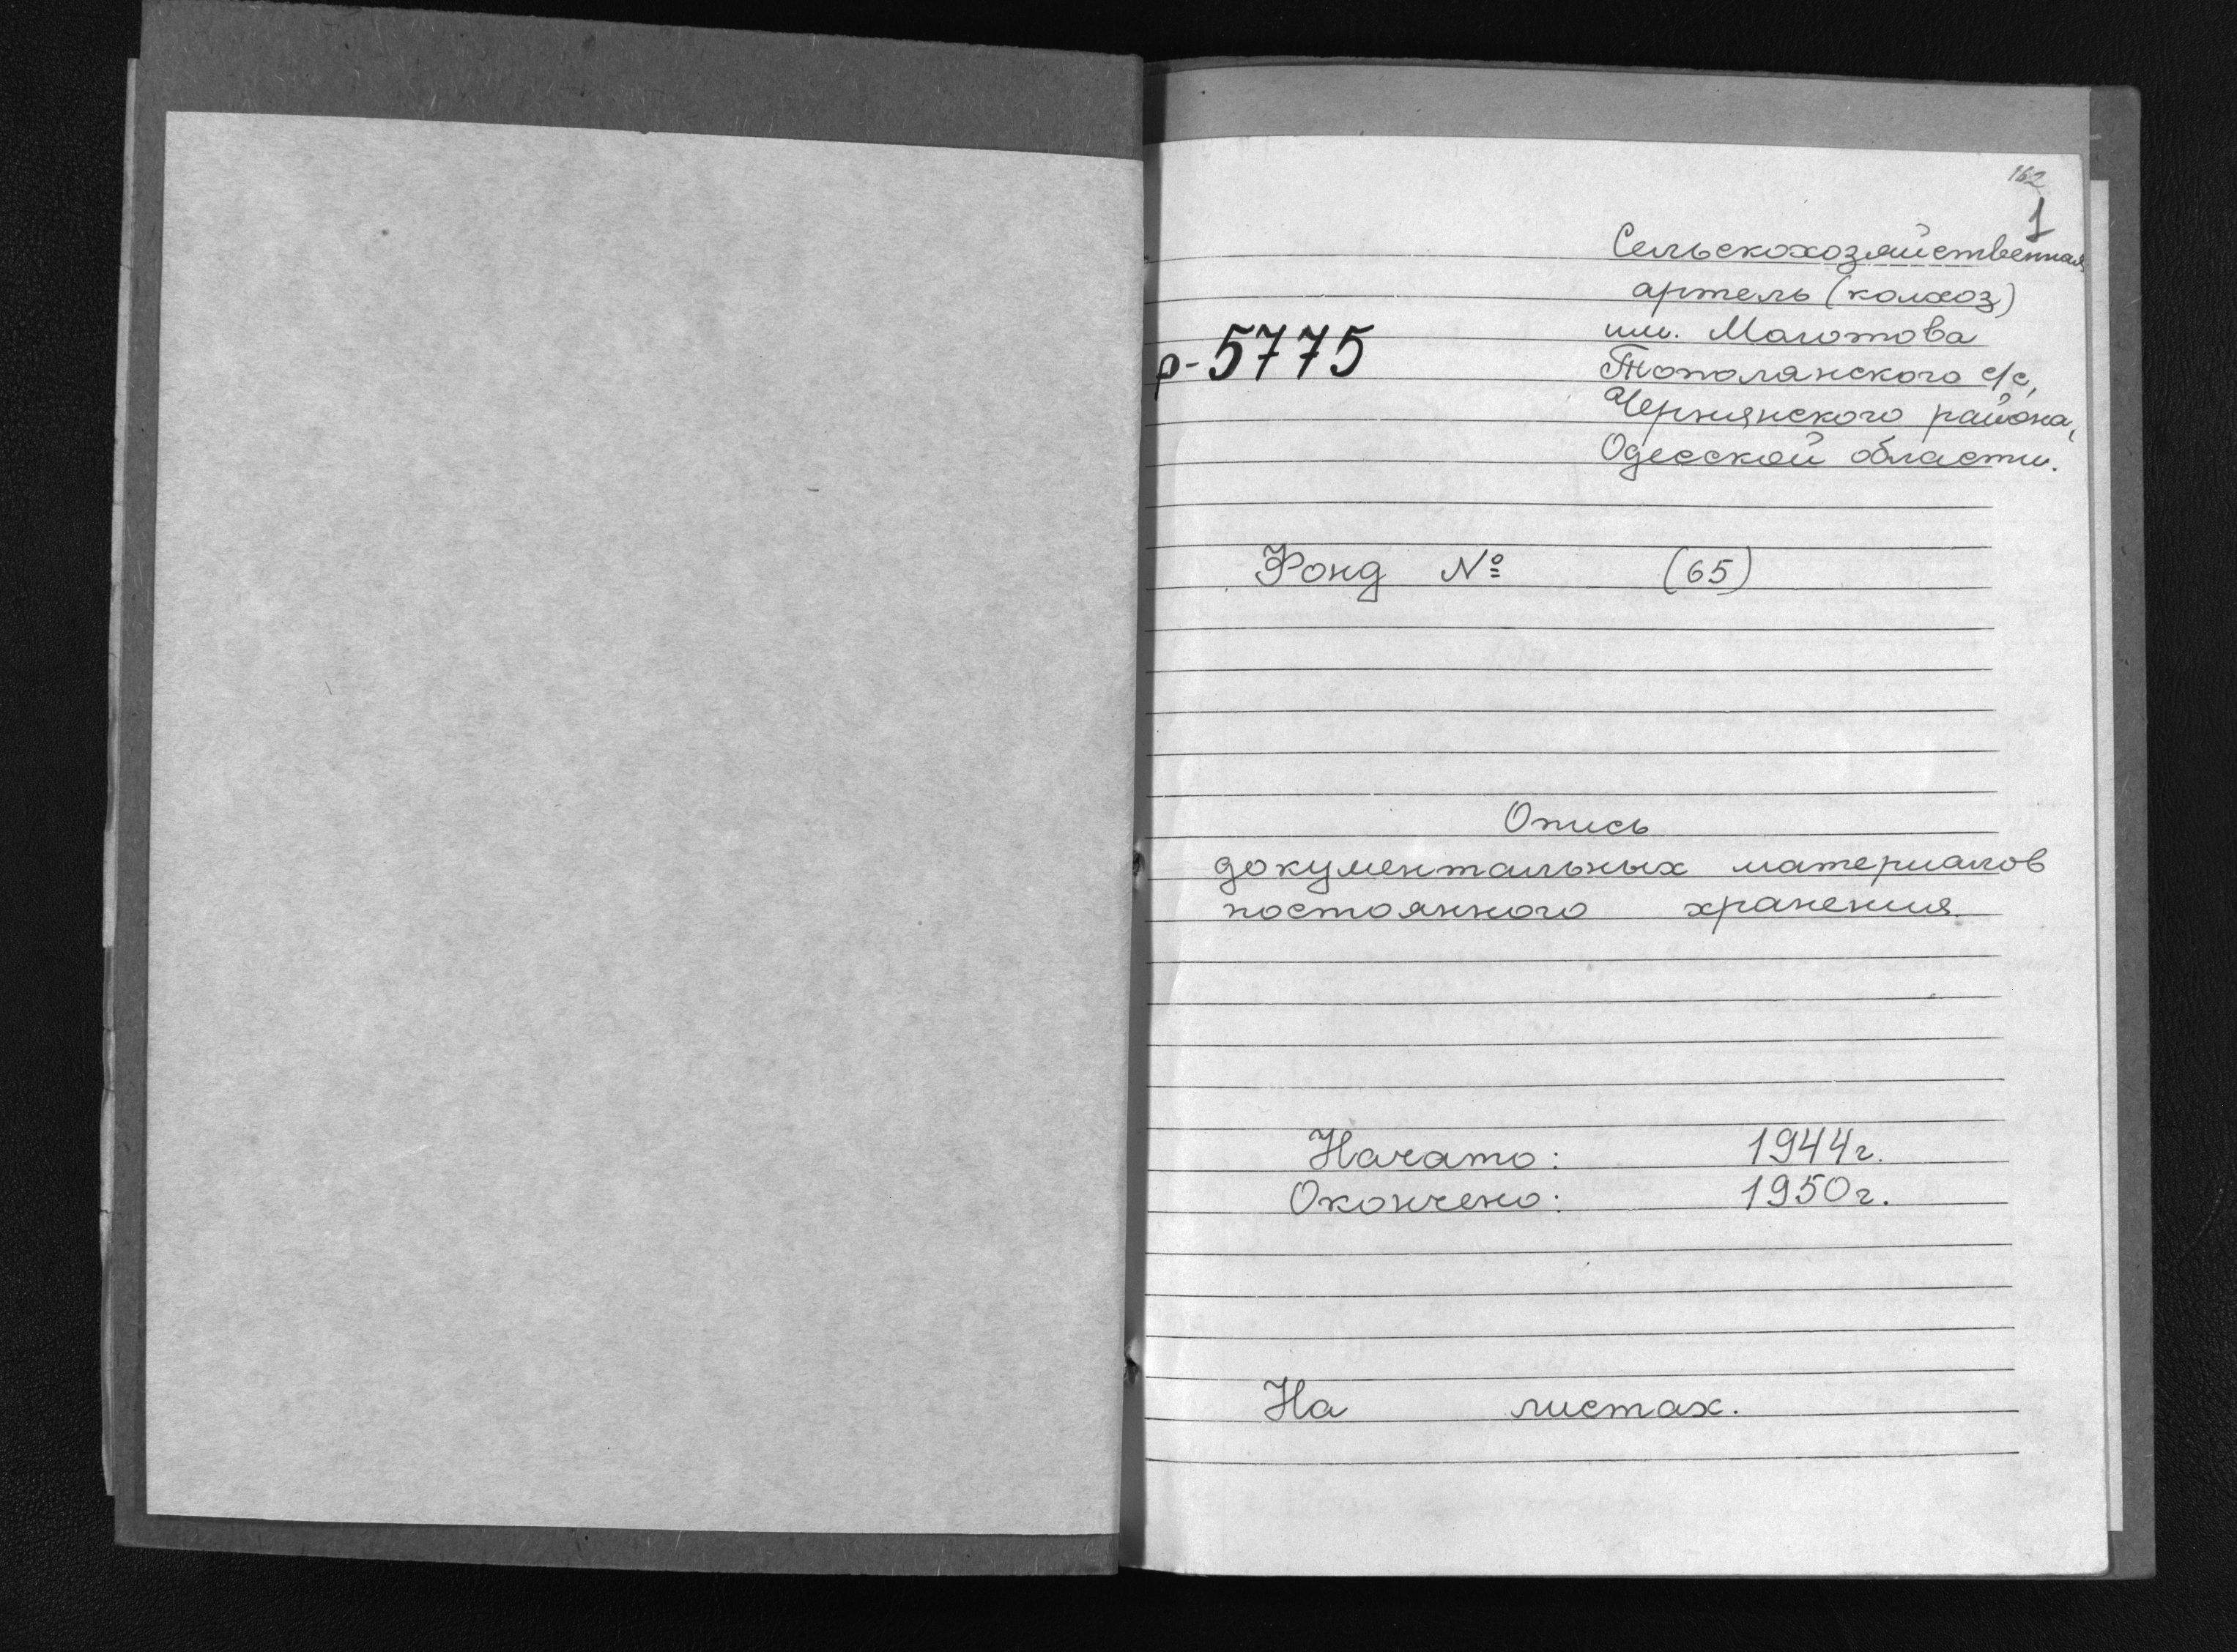 162
1
Сельскохозяйственная
артель (колхоз)
им. Молотова
р-5775
Тополянского с/с,
Чернянского района,
Одесской области.
Фонд № (65)
Опись
документальных материалов
постоянного хранения.
Начато: 1944г.
Окончено: 1950г.
На листах.